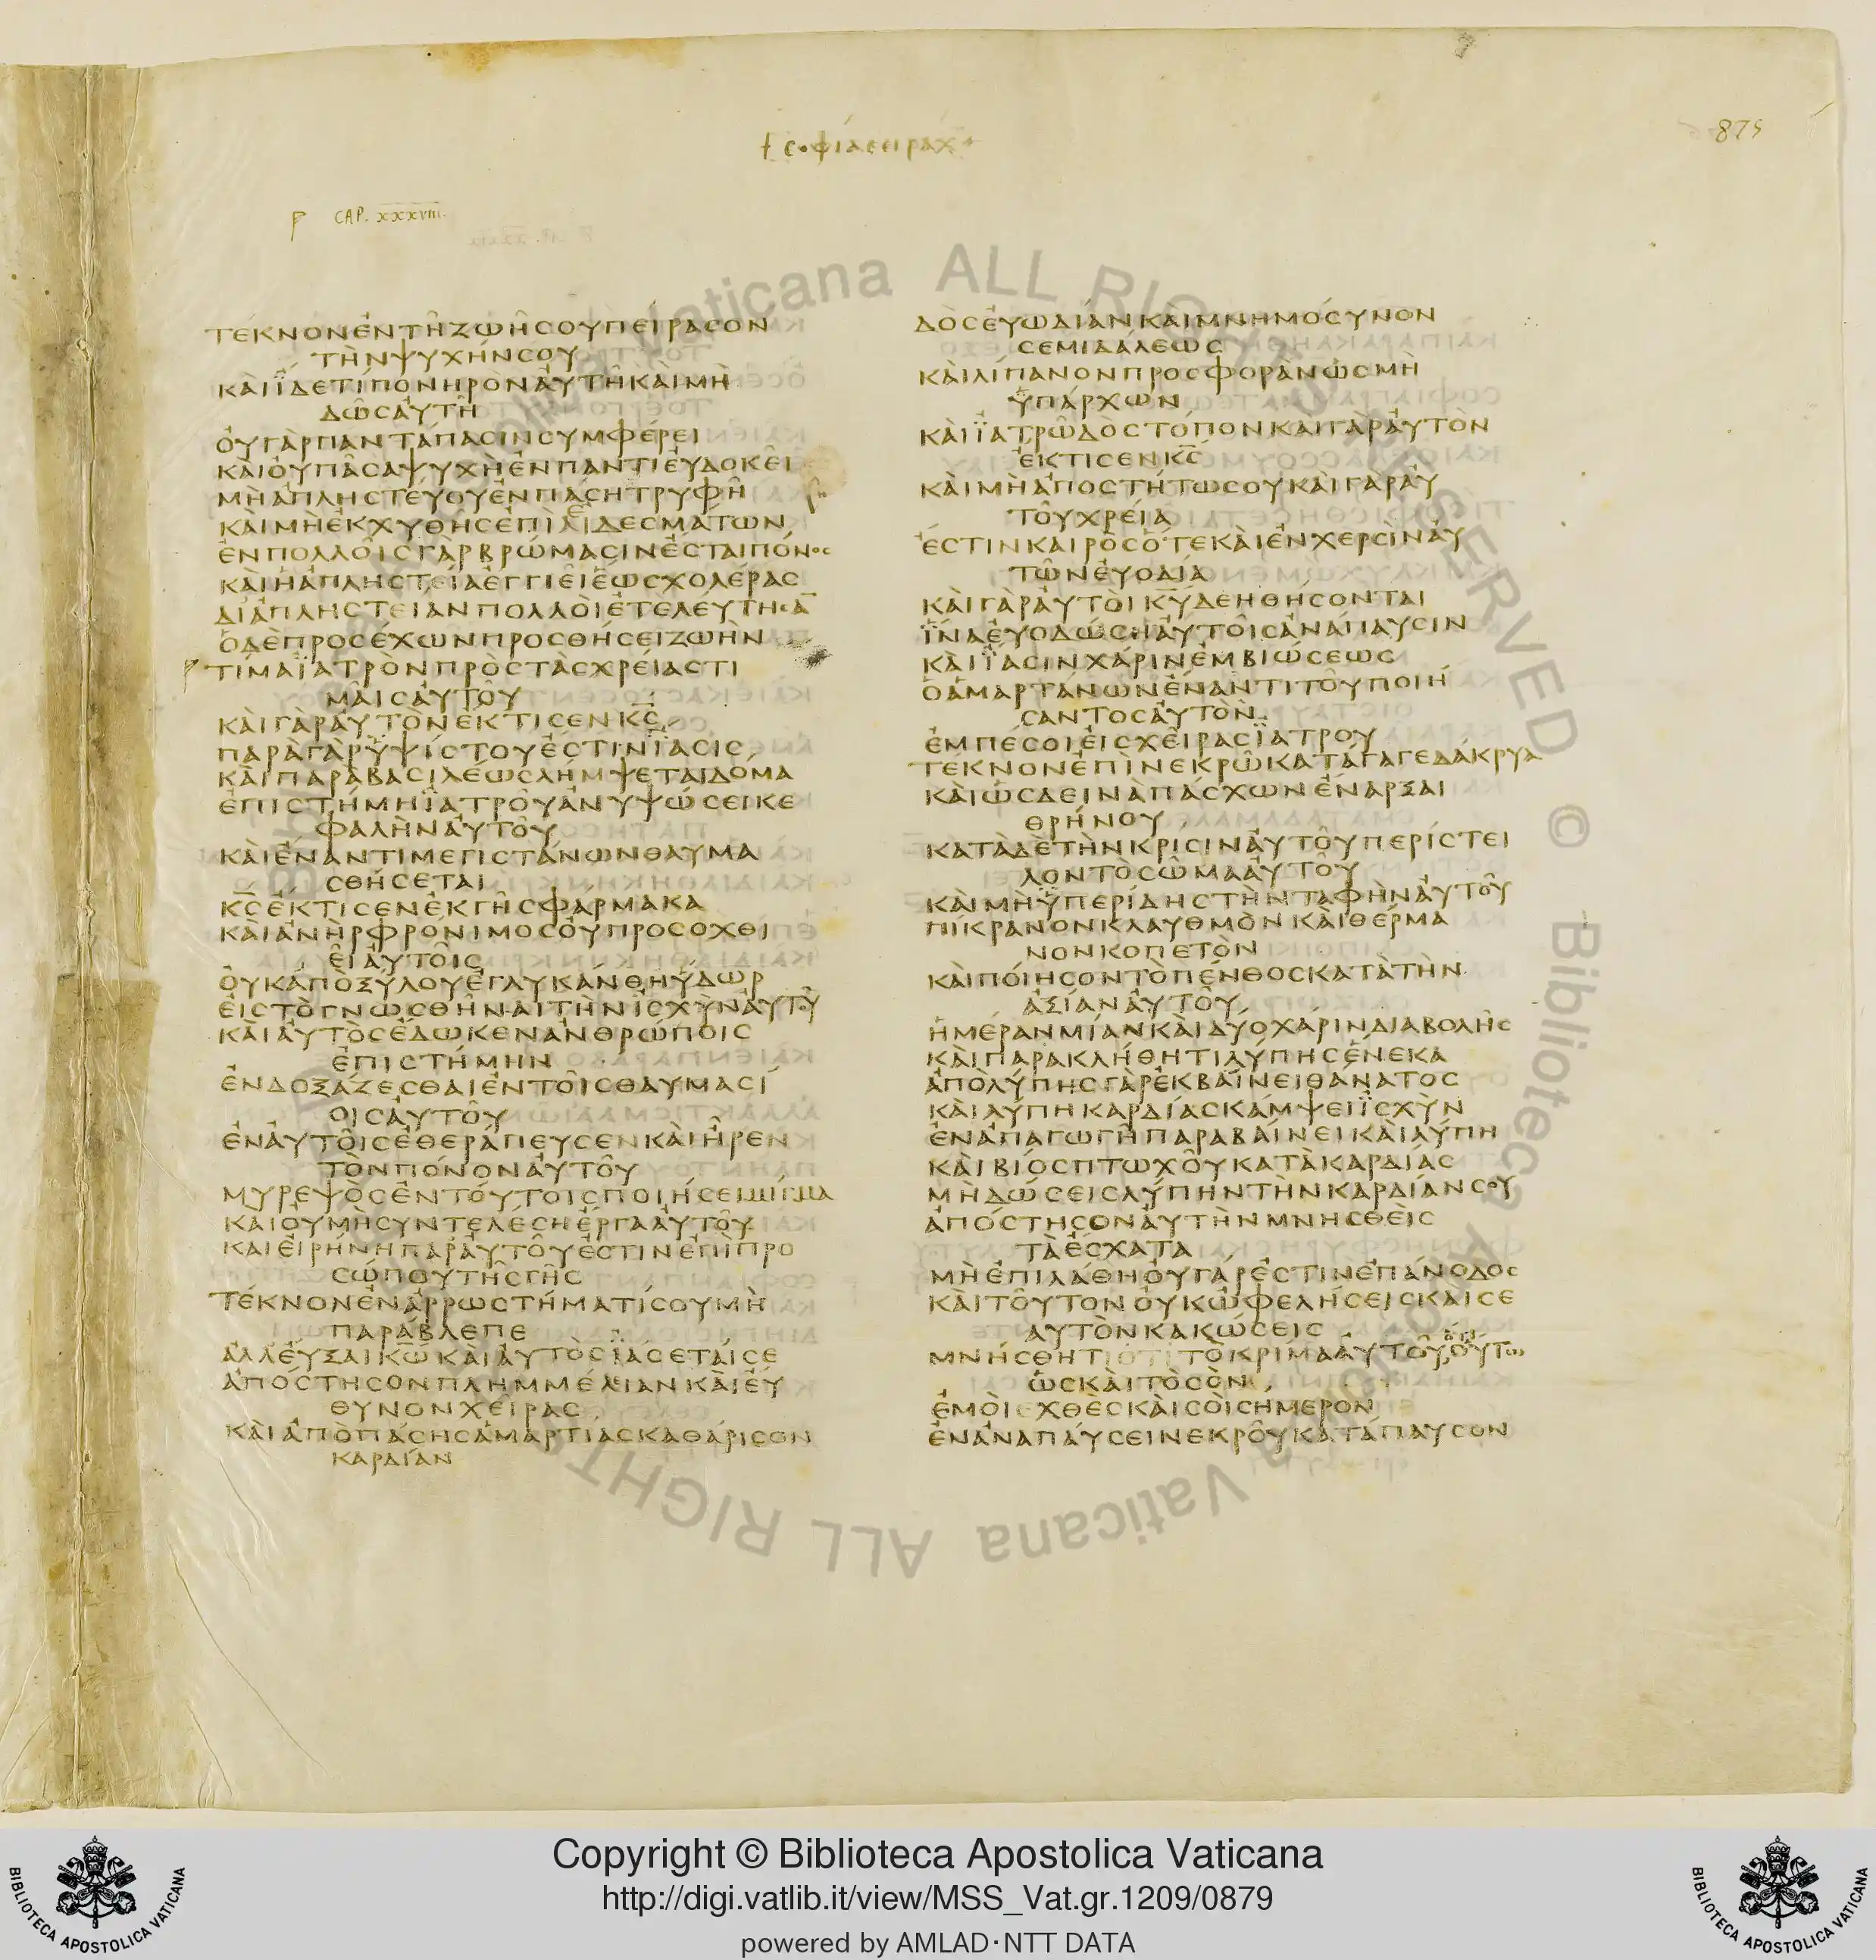 † σοφία σειραχ +
875
CAP. XXXVIII.
ΤΕΚΝΟΝΕΝΤΗΖΩΗΣΟΥΠΕΙΡΑΣΟΝ
ΤΗΝΨΥΧΗΝΣΟΥ
ΚΑΙΪΔΕΤΙΠΟΝΗΡΟΝΑΥΤΗΚΑΙΜΗ
ΔΩΣΑΥΤΗ
ΟΥΓΑΡΠΑΝΤΑΠΑΣΙΝΣΥΜΦΕΡΕΙ
ΚΑΙΟΥΠΑΣΑΨΥΧΗΕΝΠΑΝΤΙΕΥΔΟΚΕΙ
ΜΗΑΠΛΗΣΤΕΥΟΥΕΝΠΑΣΗΤΡΥΦΗ
ΚΑΙΜΗΕΚΧΥΘΗΣΕΠΙΕΔΕΣΜΑΤΩΝ
ΕΝΠΟΛΛΟΙΣΓΑΡΒΡΩΜΑΣΙΝΕΣΤΑΙΠΟΝΟΣ
ΚΑΙΗΑΠΛΗΣΤΕΙΑΕΓΓΙΕΙΕΩΣΧΟΛΕΡΑΣ
ΔΙΑΠΛΗΣΤΕΙΑΝΠΟΛΛΟΙΕΤΕΛΕΥΤΗΣΑ̅
ΟΔΕΠΡΟΣΕΧΩΝΠΡΟΣΘΗΣΕΙΖΩΗΝ
ΤΙΜΑΪΑΤΡΟΝΠΡΟΣΤΑΣΧΡΕΙΑΣΤΙ
ΜΑΙΣΑΥΤΟΥ
ΚΑΙΓΑΡΑΥΤΟΝΕΚΤΙΣΕΝΚ̅Σ̅
ΠΑΡΑΓΑΡΫΨΙΣΤΟΥΕΣΤΙΝΪΑΣΙΣ
ΚΑΙΠΑΡΑΒΑΣΙΛΕΩΣΛΗΜΨΕΤΑΙΔΟΜΑ
ΕΠΙΣΤΗΜΗΪΑΤΡΟΥΑΝΥΨΩΣΕΙΚΕ
ΦΑΛΗΝΑΥΤΟΥ
ΚΑΙΕΝΑΝΤΙΜΕΓΙΣΤΑΝΩΝΘΑΥΜΑ
ΣΘΗΣΕΤΑΙ
Κ̅Σ̅ΕΚΤΙΣΕΝΕΚΓΗΣΦΑΡΜΑΚΑ
ΚΑΙΑΝΗΡΦΡΟΝΙΜΟΣΟΥΠΡΟΣΟΧΘΙ
ΕΙΑΥΤΟΙΣ
ΟΥΚΑΠΟΞΥΛΟΥΕΓΛΥΚΑΝΘΗΫΔΩΡ
ΕΙΣΤΟΓΝΩΣΘΗΝΑΙΤΗΝΙΣΧΥΝΑΥΤΟΥ
ΚΑΙΑΥΤΟΣΕΔΩΚΕΝΑΝΘΡΩΠΟΙΣ
ΕΠΙΣΤΗΜΗΝ
ΕΝΔΟΞΑΖΕΣΘΑΙΕΝΤΟΙΣΘΑΥΜΑΣΙ
ΟΙΣΑΥΤΟΥ
ΕΝΑΥΤΟΙΣΕΘΕΡΑΠΕΥΣΕΝΚΑΙΗΡΕΝ
ΤΟΝΠΟΝΟΝΑΥΤΟΥ
ΜΥΡΕΨΟΣΕΝΤΟΥΤΟΙΣΠΟΙΗΣΕΙΜΙΓΜΑ
ΚΑΙΟΥΜΗΣΥΝΤΕΛΕΣΗΕΡΓΑΑΥΤΟΥ
ΚΑΙΕΙΡΗΝΗΠΑΡΑΥΤΟΥΕΣΤΙΝΕΠΙΠΡΟ
ΣΩΠΟΥΤΗΣΓΗΣ
ΤΕΚΝΟΝΕΝΑΡΡΩΣΤΗΜΑΤΙΣΟΥΜΗ
ΠΑΡΑΒΛΕΠΕ
ΑΛΛΕΥΞΑΙΚ̅Ω̅ΚΑΙΑΥΤΟΣΪΑΣΕΤΑΙΣΕ
ΑΠΟΣΤΗΣΟΝΠΛΗΜΜΕΛΙΑΝΚΑΙΕΥ
ΘΥΝΟΝΧΕΙΡΑΣ
ΚΑΙΑΠΟΠΑΣΗΣΑΜΑΡΤΙΑΣΚΑΘΑΡΙΣΟΝ
ΚΑΡΔΙΑΝ
ΔΟΣΕΥΩΔΙΑΝΚΑΙΜΝΗΜΟΣΥΝΟΝ
ΣΕΜΙΔΑΛΕΩΣ
ΚΑΙΛΙΠΑΝΟΝΠΡΟΣΦΟΡΑΝΩΣΜΗ
ΫΠΑΡΧΩΝ
ΚΑΙΪΑΤΡΩΔΟΣΤΟΠΟΝΚΑΙΓΑΡΑΥΤΟΝ
ΕΚΤΙΣΕΝΚ̅Σ̅
ΚΑΙΜΗΑΠΟΣΤΗΤΩΣΟΥΚΑΙΓΑΡΑΥ
ΤΟΥΧΡΕΙΑ
ΕΣΤΙΝΚΑΙΡΟΣΟΤΕΚΑΙΕΝΧΕΡΣΙΝΑΥ
ΤΩΝΕΥΟΔΙΑ
ΚΑΙΓΑΡΑΥΤΟΙΚ̅Υ̅ΔΕΗΘΗΣΟΝΤΑΙ
ΪΝΑΕΥΟΔΩΣΗΑΥΤΟΙΣΑΝΑΠΑΥΣΙΝ
ΚΑΙΪΑΣΙΝΧΑΡΙΝΕΜΒΙΩΣΕΩΣ
ΟΑΜΑΡΤΑΝΩΝΕΝΑΝΤΙΤΟΥΠΟΙΗ
ΣΑΝΤΟΣΑΥΤΟΝ
ΕΜΠΕΣΟΙΕΙΣΧΕΙΡΑΣΪΑΤΡΟΥ
ΤΕΚΝΟΝΕΠΙΝΕΚΡΩΚΑΤΑΓΑΓΕΔΑΚΡΥΑ
ΚΑΙΩΣΔΕΙΝΑΠΑΣΧΩΝΕΝΑΡΞΑΙ
ΘΡΗΝΟΥ
ΚΑΤΑΔΕΤΗΝΚΡΙΣΙΝΑΥΤΟΥΠΕΡΙΣΤΕΙ
ΛΟΝΤΟΣΩΜΑΑΥΤΟΥ
ΚΑΙΜΗΫΠΕΡΙΔΗΣΤΗΝΤΑΦΗΝΑΥΤΟΥ
ΠΙΚΡΑΝΟΝΚΛΑΥΘΜΟΝΚΑΙΘΕΡΜΑ
ΝΟΝΚΟΠΕΤΟΝ
ΚΑΙΠΟΙΗΣΟΝΤΟΠΕΝΘΟΣΚΑΤΑΤΗΝ
ΑΞΙΑΝΑΥΤΟΥ
ΗΜΕΡΑΝΜΙΑΝΚΑΙΔΥΟΧΑΡΙΝΔΙΑΒΟΛΗΣ
ΚΑΙΠΑΡΑΚΛΗΘΗΤΙΛΥΠΗΣΕΝΕΚΑ
ΑΠΟΛΥΠΗΣΓΑΡΕΚΒΑΙΝΕΙΘΑΝΑΤΟΣ
ΚΑΙΛΥΠΗΚΑΡΔΙΑΣΚΑΜΨΕΙΪΣΧΥΝ
ΕΝΑΠΑΓΩΓΗΠΑΡΑΒΑΙΝΕΙΚΑΙΛΥΠΗ
ΚΑΙΒΙΟΣΠΤΩΧΟΥΚΑΤΑΚΑΡΔΙΑΣ
ΜΗΔΩΣΕΙΣΛΥΠΗΝΤΗΝΚΑΡΔΙΑΝΣΟΥ
ΑΠΟΣΤΗΣΟΝΑΥΤΗΝΜΝΗΣΘΕΙΣ
ΤΑΕΣΧΑΤΑ
ΜΗΕΠΙΛΑΘΗΟΥΓΑΡΕΣΤΙΝΕΠΑΝΟΔΟΣ
ΚΑΙΤΟΥΤΟΝΟΥΚΩΦΕΛΗΣΕΙΣΚΑΙΣΕ
ΑΥΤΟΝΚΑΚΩΣΕΙΣ
ΜΝΗΣΘΗΤΙΟΤΙΤΟΚΡΙΜΑΑΥΤΟΥΟΥΤΩ
ΩΣΚΑΙΤΟΣΟΝ
ΕΜΟΙΕΧΘΕΣΚΑΙΣΟΙΣΗΜΕΡΟΝ
ΕΝΑΝΑΠΑΥΣΕΙΝΕΚΡΟΥΚΑΤΑΠΑΥΣΟΝ
Copyright © Biblioteca Apostolica Vaticana
http://digi.vatlib.it/view/MSS_Vat.gr.1209/0879
powered by AMLAD·NTT DATA
BIBLIOTECA APOSTOLICA VATICANA
BIBLIOTECA APOSTOLICA VATICANA